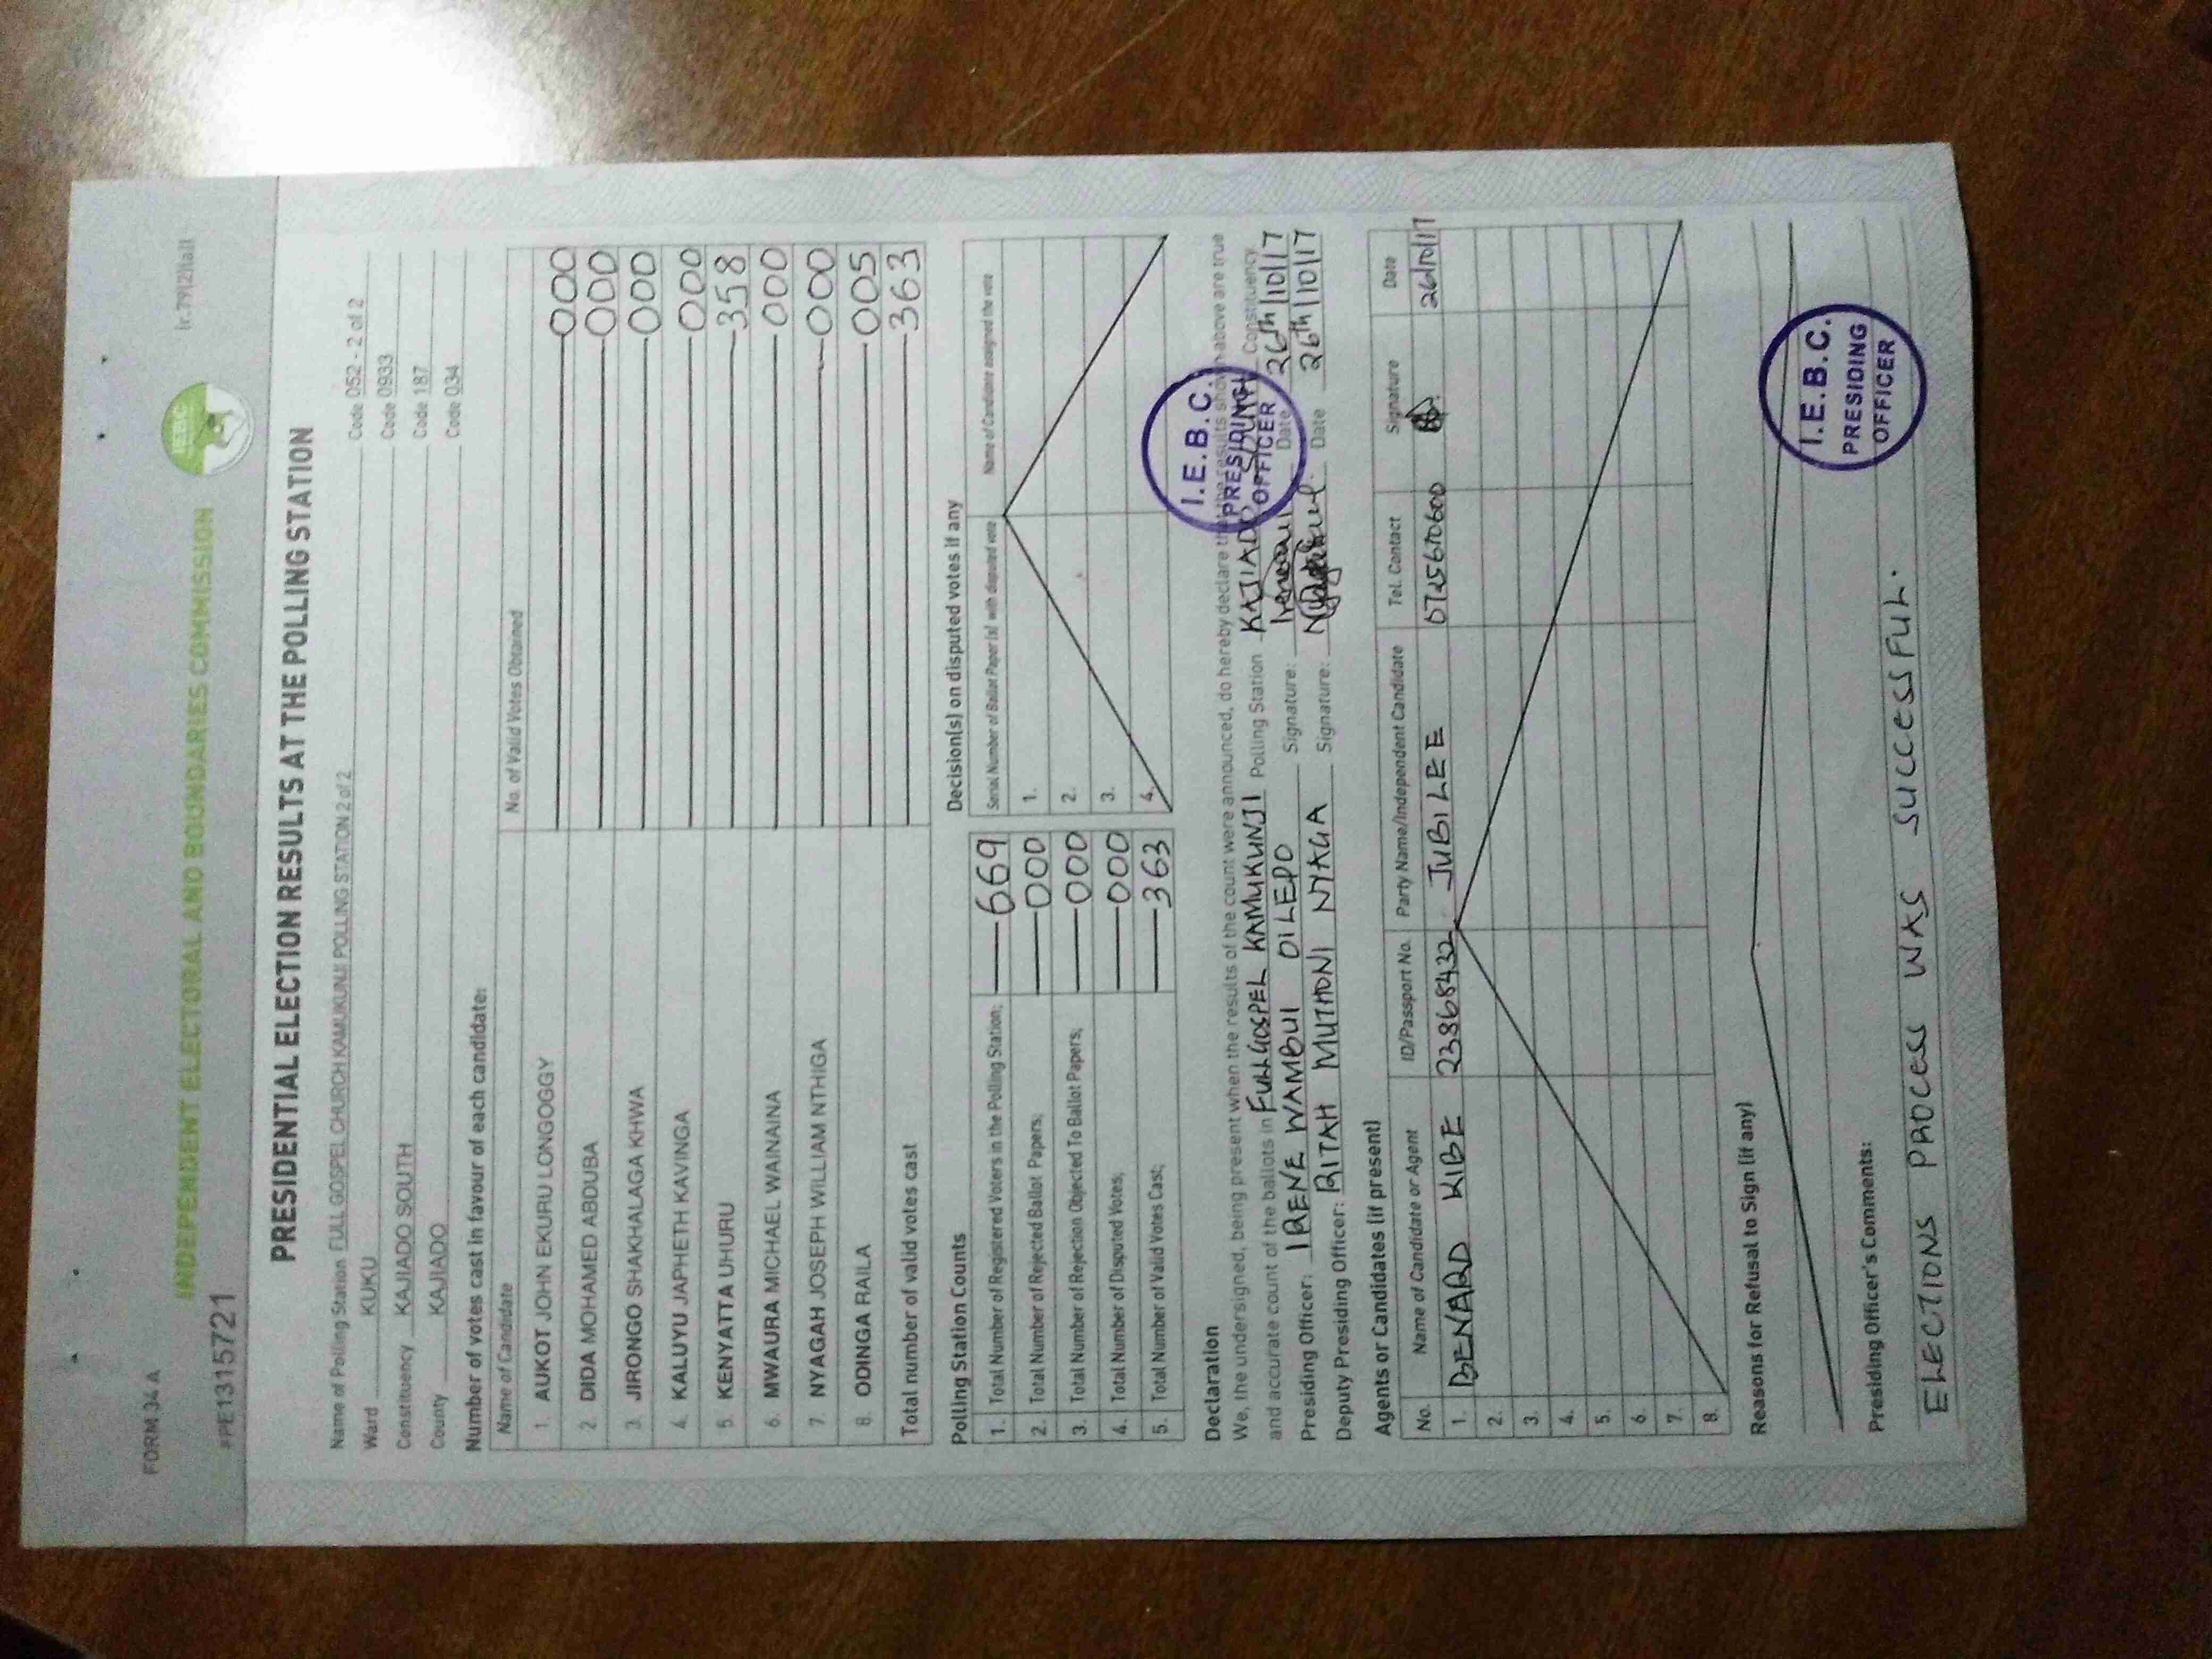 FORM 34 A
r.79(2)(a)
INDEPENDENT ELECTORAL AND BOUNDARIES COMMISSION
IEBC
#PE1315721
PRESIDENTIAL ELECTION RESULTS AT THE POLLING STATION
Name of Polling Station FULL GOSPEL CHURCH KAMUKUNJI POLLING STATION 2 of 2 Code 052 - 2 of 2
Ward KUKU Code 0933
Constituency KAJIADO SOUTH Code 187
County KAJIADO Code 034
Number of votes cast in favour of each candidate:
Name of Candidate No. of Valid Votes Obtained
1. AUKOT JOHN EKURU LONGOGGY 000
2. DIDA MOHAMED ABDUBA 000
3. JIRONGO SHAKHALAGA KHWA 000
4. KALUYU JAPHETH KAVINGA 000
5. KENYATTA UHURU 358
6. MWAURA MICHAEL WAINAINA 000
7. NYAGAH JOSEPH WILLIAM NTHIGA 000
8. ODINGA RAILA 005
Total number of valid votes cast 363
Polling Station Counts
1. Total Number of Registered Voters in the Polling Station; 669
2. Total Number of Rejected Ballot Papers; 000
3. Total Number of Rejection Objected To Ballot Papers; 000
4. Total Number of Disputed Votes; 000
5. Total Number of Valid Votes Cast; 363
Decision(s) on disputed votes if any
Serial Number of Ballot Paper (s) with disputed vote Name of Candidate assigned the vote
1.
2.
3.
4.
Declaration
We, the undersigned, being present when the results of the count were announced, do hereby declare that the results shown above are true
and accurate count of the ballots in FULL GOSPEL KAMUKUNJI Polling Station KAJIADO SOUTH Constituency
Presiding Officer: IRENE WAMBUI OILEPO Signature: Date 26th/10/17
Deputy Presiding Officer: RITAH MUTHONI NYAGA Signature: Date 26th/10/17
I.E.B.C.
PRESIDING
OFFICER
Agents or Candidates (if present)
No. Name of Candidate or Agent ID/Passport No. Party Name/Independent Candidate Tel. Contact Signature Date
1. BENARD KIBE 23868432 JUBILEE 0725670600 26/10/17
2.
3.
4.
5.
6.
7.
8.
Reasons for Refusal to Sign (if any)
Presiding Officer's Comments:
ELECTIONS PROCESS WAS SUCCESSFUL.
I.E.B.C.
PRESIDING
OFFICER